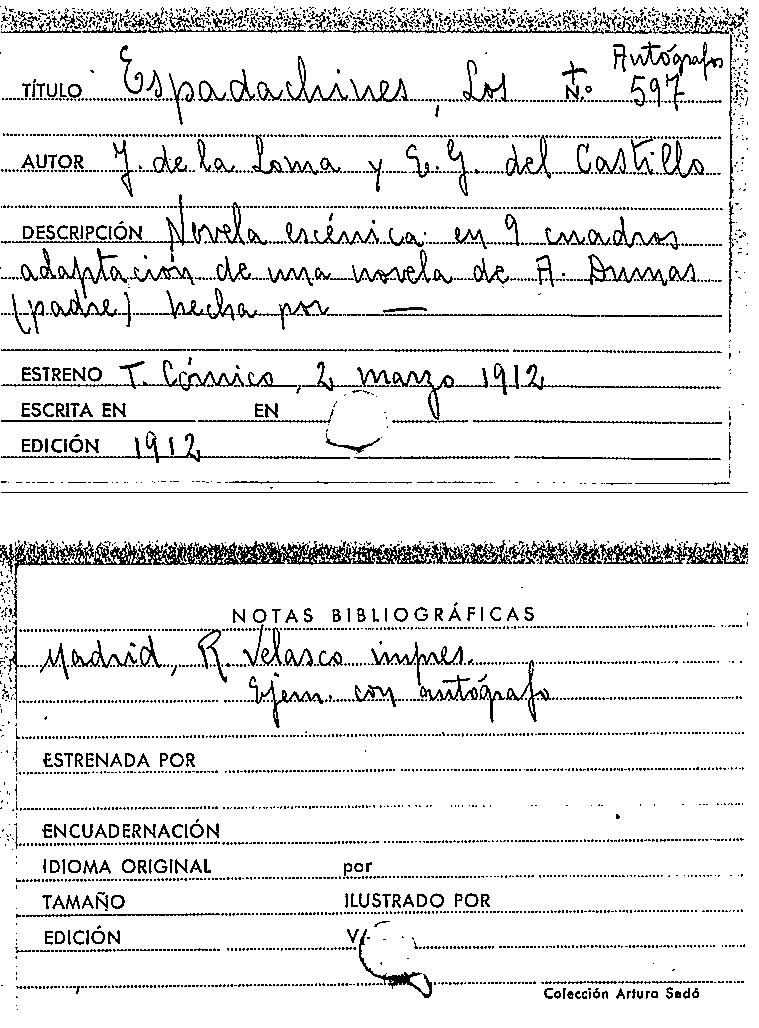 Autógrafos
TÍTULO Espadachines, Los N.º 597
AUTOR J. de la Loma y E. G. del Castillo
DESCRIPCIÓN Novela escénica en 9 cuadros
adaptación de una novela de A. Dumas
(padre) hecha por —
ESTRENO T. Cómico, 2 marzo 1912
ESCRITA EN EN
EDICIÓN 1912
NOTAS BIBLIOGRÁFICAS
Madrid, R. Velasco impres.
Ejem. con autógrafo
ESTRENADA POR
ENCUADERNACIÓN
IDIOMA ORIGINAL por
TAMAÑO ILUSTRADO POR
EDICIÓN
Colección Arturo Sedó